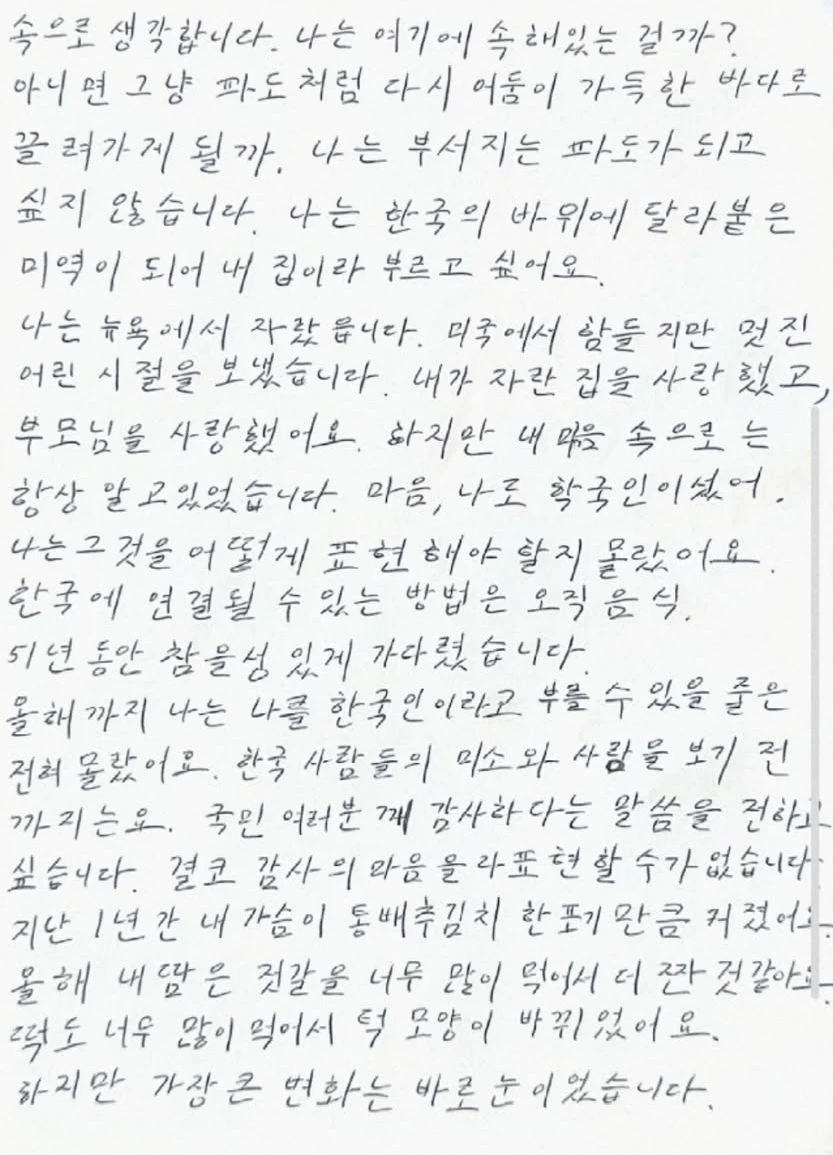 속으로 생각합니다. 나는 여기에 속해있는 걸까?
아니면 그냥 파도처럼 다시 어둠이 가득한 바다로
끌려가게 될까. 나는 부서지는 파도가 되고
싶지 않습니다. 나는 한국의 바위에 달라붙은
미역이 되어 내 집이라 부르고 싶어요.
나는 뉴욕에서 자랐읍니다. 미국에서 함들지만 멋진
어린 시절을 보냈습니다. 내가 자란 집을 사랑했고,
부모님을 사랑했어요. 하지만 내 마음 속으로는
항상 알고있었습니다. 마음, 나도 학국인이셨어.
나는 그것을 어떻게 표현해야 할지 몰랐어요.
한국에 연결될 수 있는 방법은 오직 음식.
51년 동안 참을성 있게 가다렸습니다.
올해까지 나는 나를 한국인이라고 부를 수 있을 줄은
전혀 몰랐어요. 한국 사람들의 미소와 사람을 보기 전
까지는요. 국민 여러분께 감사하다는 말씀을 전하고
싶습니다. 결코 감사의 마음을 라표현할 수가 없습니다
지난 1년간 내 가슴이 통배추김치 한포기만큼 커졌어요.
올해 내 땀은 젓갈을 너무 많이 먹어서 더 짠 것같아요.
떡도 너무 많이 먹어서 턱 모양이 바뀌었어요.
하지만 가장 큰 변화는 바로 눈이었습니다.